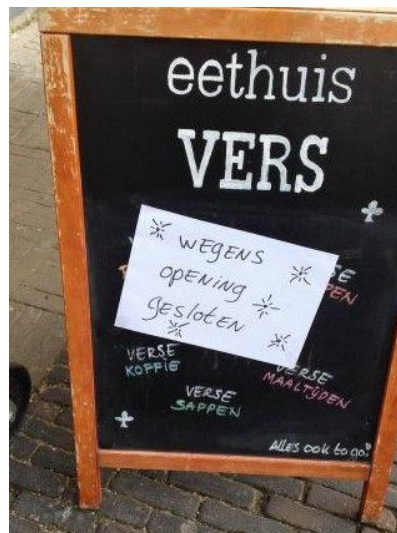 eethuis
VERS
WEGENS
OPENING
GESLOTEN
VERSE
KOFFIE
VERSE
MAALTIJDEN
VERSE
SAPPEN
ALLES OOK to go!